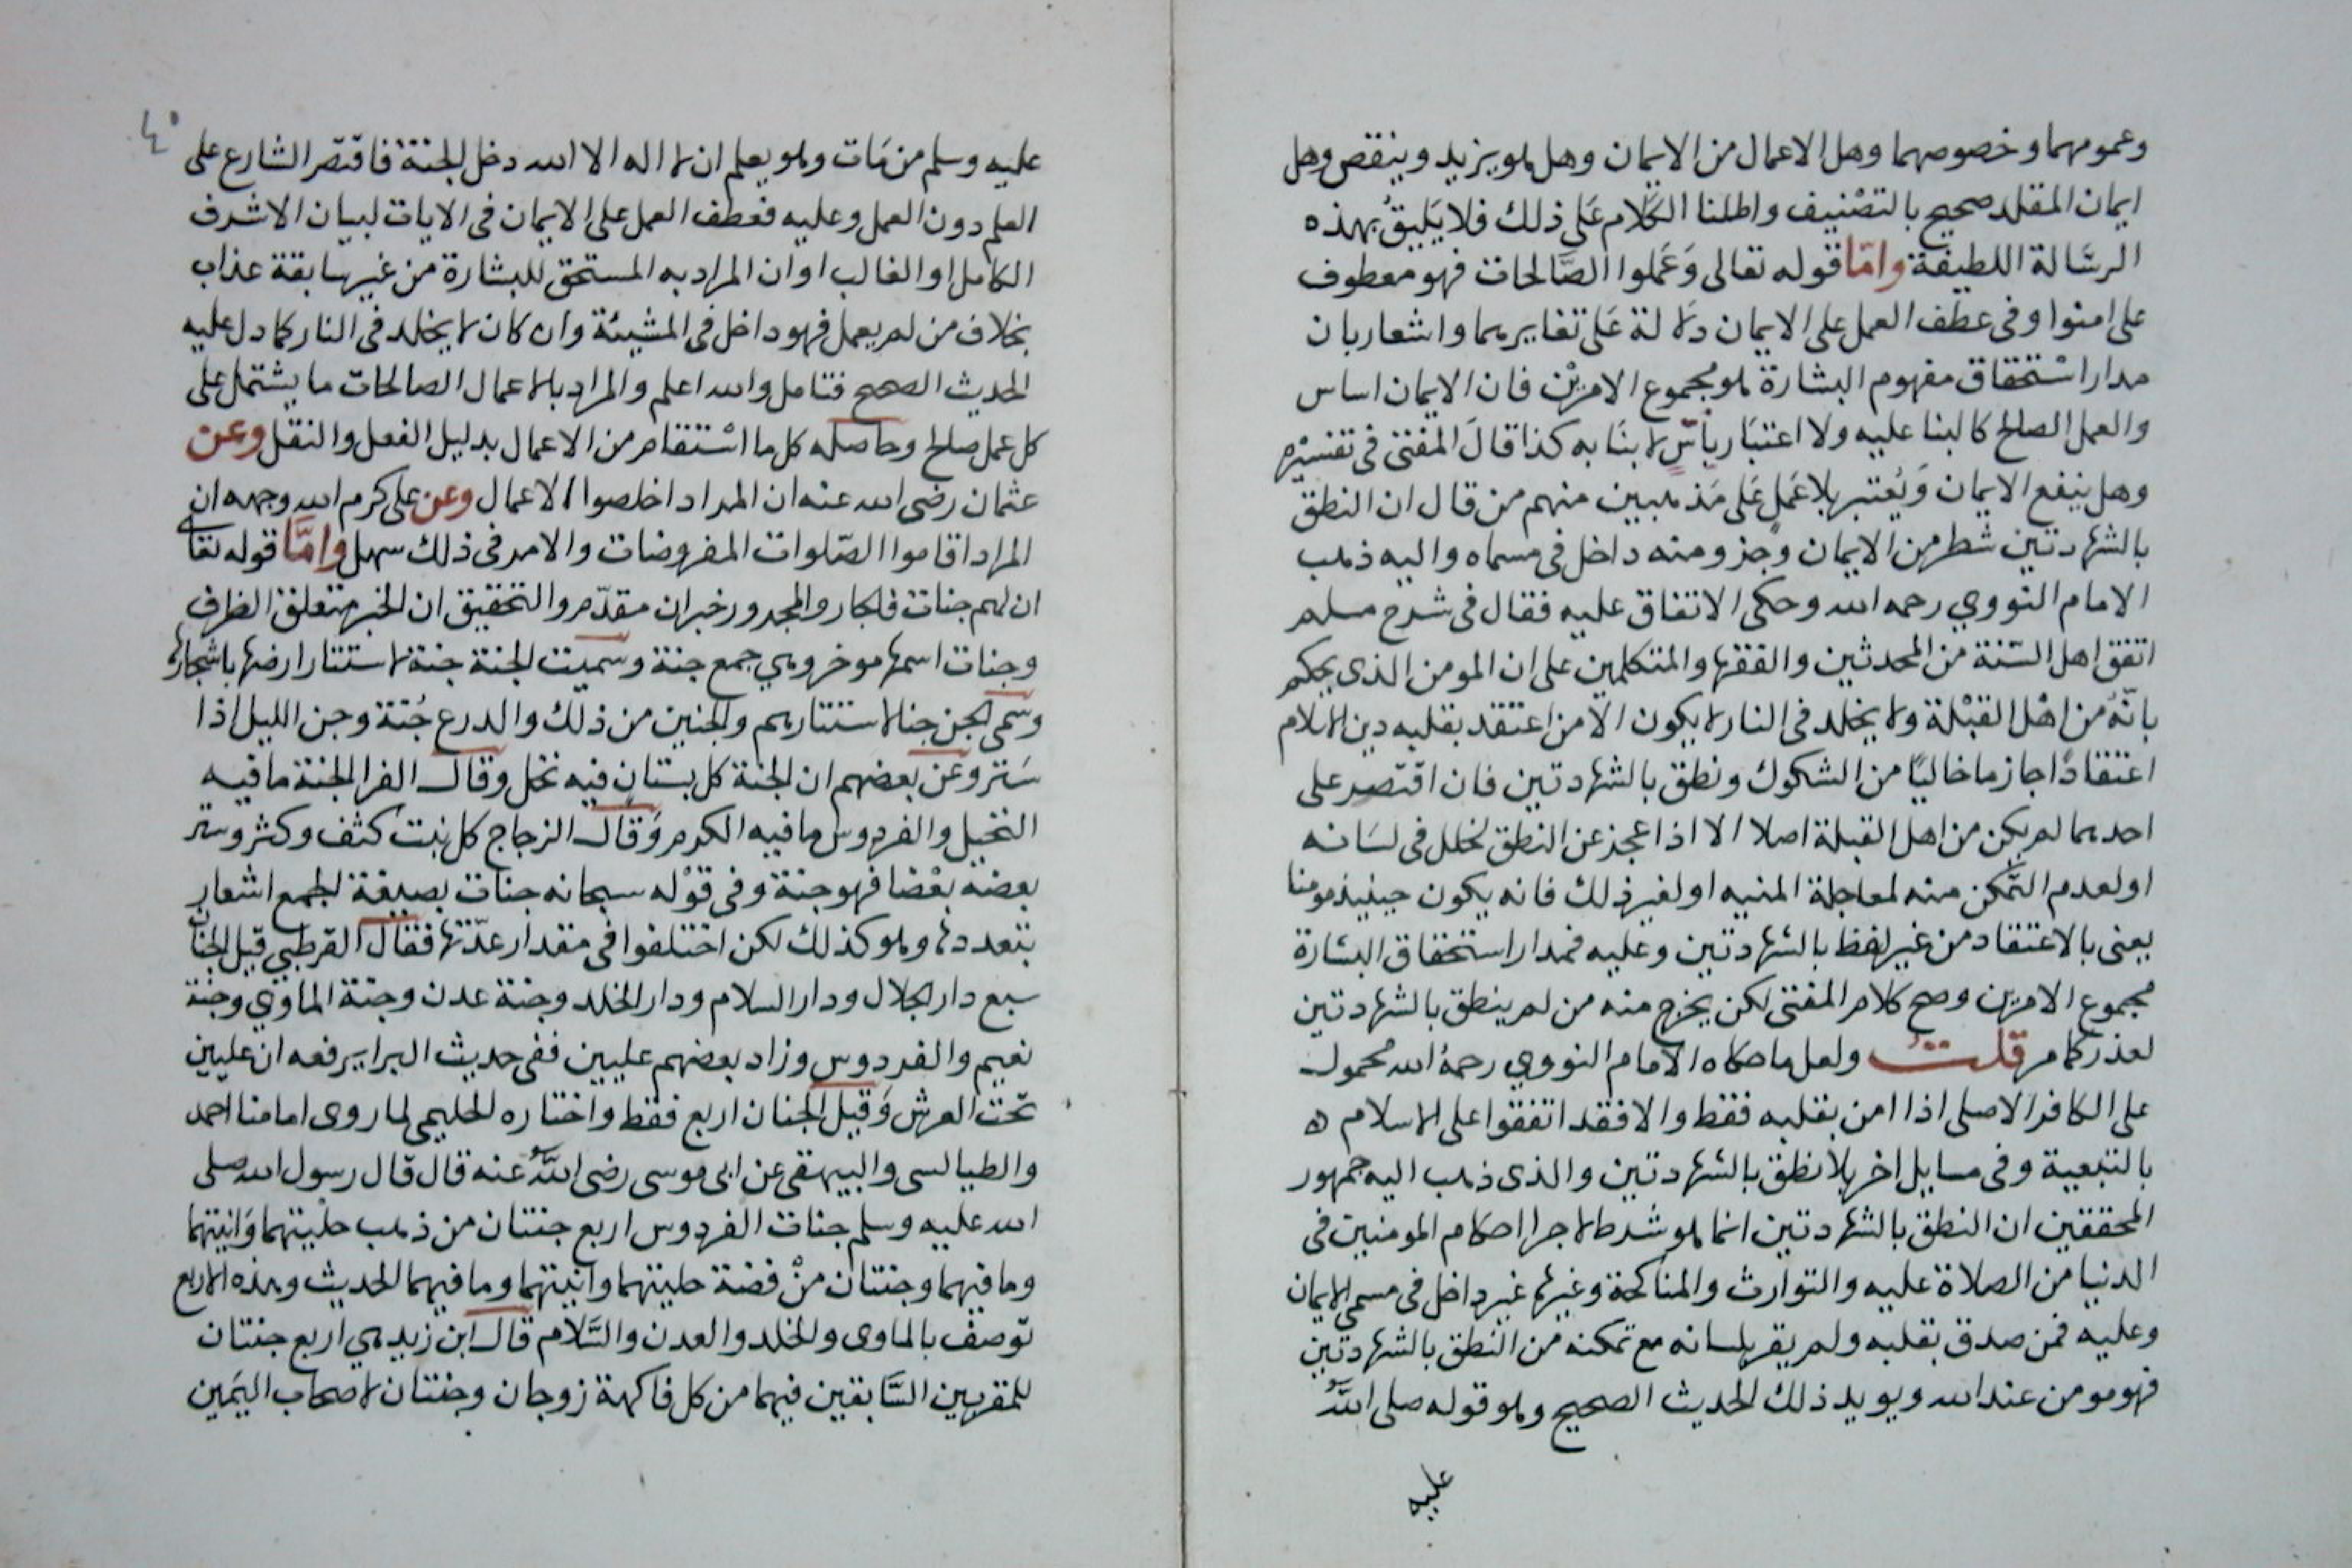 وعمومهما وخصوصهما وهل الاعمال من الايمان وهل هو يزيد وينقص وهل
ايمان المقلد صحيح بالتصْنيف واطلنا الكَلام عَلى ذلك فلا يَليقُ بهذه
الرسَالة اللطيفة وامّا قوله تعالى وَعَملوا الصَّالحات فهو معطوف
على امنوا وفى عطف العمل على الايمان دلالة عَلى تغايرهما واشعار بان
مدار اسْتحقاق مفهوم البشارة هو مجموع الامريْن فان الايمان اساس
والعمل الصالح كالبنا عليه ولا اعتبَار باسّ لا بنَا به كذا قالَ المفتى فى تفسيْره
وهل ينفع الايمان وَيُعتبر بلا عَمَلٍ عَلى مَذهبين منهم من قال ان النطق
بالشهادتين شطر من الايمان وجزو منه داخل فى مسماه واليه ذهب
الامام النووي رحمه الله وحكى الاتفاق عليه فقال فى شرح مسلم
اتفق اهل السّنة من المحدثين والفقها والمتكلمين على ان المومن الذى يحكم
بانّهُ من اهْل القبْلة ولا يخلد فى النار لا يكون الا من اعتقد بقلبه دين الاسلام
اعتقادًا جازما خاليًا من الشكوك ونطق بالشهادتين فان اقتصر على
احدهما لم يكن من اهل القبلة اصلا الا اذا عجز عن النطق لخلل فى لسَانه
اولعدم التّمكن منه لمعاجلة المنيه او لغير ذلك فانه يكون حينيذ مومنا
يعنى بالاعتقاد من غير لفظ بالشهادتين وعليه فمدار استحقاق البشارة
مجموع الامرين وصح كلام المفتى لكن يخرج منه من لم ينطق بالشهادتين
لعذر كما مر قلتُ ولعل ما حكاه الامام النووي رحمهُ الله محمول
على الكافر الاصلى اذا امن بقلبه فقط والا فقد اتفقوا على الاسلام ه
بالتبعية وفى مسايل اخر بلا نطق بالشهادتين والذى ذهب اليه جمهور
المحققين ان النطق بالشهادتين انما هو شرط لاجرا احكام المومنين فى
الدنيا من الصلاة عليه والتوارث والمناكحة وغيرها غير داخل فى مسمى الايمان
وعليه فمن صدق بقلبه ولم يقر بلسانه مع تمكنه من النطق بالشهادتين
فهو مومن عند الله ويويد ذلك الحديث الصحيح وهو قوله صلى اللّهُ
عليه
٤٠
عليه وسلم من مَات وهو يعلم ان لا اله الا الله دخل الجنة فاقتصر الشارع على
العلم دون العمل وعليه فعطف العمل على الايمان فى الايات لبيان الاشرف
الكامل او الغالب او ان المراد به المستحق للبشارة من غير سابقة عذاب
بخلاف من لم يعمل فهو داخل فى المشيئة وان كان لا يخلد فى النار كما دل عليه
الحديث الصحيح فتامل والله اعلم والمراد بالاعمال الصالحات ما يشتمل على
كل عمل صالح وحاصله كل ما اسْتقام من الاعمال بدليل الفعل والنقل وعن
عثمان رضى الله عنه ان المراد اخلصوا الاعمال وعن على كرم الله وجهه ان
المراد اقاموا الصّلوات المفروضات والامر فى ذلك سهل وامَّا قوله تعا
ان لهم جنات فالجار والمجرور خبر ان مقدّم والتحقيق ان الخبر متعلق الظرف
وجنات اسمها موخر وهي جمع جنة وسميت الجنة جنة لاستتار ارضها باشجارها
وسمى الجن جنا لاستتارهم والجنين من ذلك والدرع جُنة وجن الليل اذا
سَتر وعن بعضهم ان الجنة كل بستان فيه نخل وقال الفرا الجنة ما فيه
النخيل والفردوس ما فيه الكرم وَقال الزجاج كل نبت كثف وكثر وستر
بعضه بعْضا فهو جنة وفى قوْله سبحانه جنات بصيغة الجمع اشعار
بتعددها وهو كذلك لكن اختلفوا فى مقدار عدّتها فقال القرطبي قيل الجنان
سبع دار الجلال ودار السلام ودار الخلد وجنة عدن وجنة الماوي وجنة
نعيم والفردوس وزاد بعضهم عليين ففى حديث البرا يرفعه ان عليين
تحت العرش وَقيل الجنان اربع فقط واختاره الحليمى لما روى امامنا احمد
والطيالسى والبيهقى عن ابى موسى رضى اللّهُ عنه قال قال رسول الله صلى
الله عليه وسلم جنات الفردوس اربع جنتان من ذهب حليتهما وَانيتهما
وما فيهما وجنتان منْ فضة حليتهما وانيتهما وما فيهما الحديث وهذه الاربع
توصف بالماوى والخلد والعدن والسَّلام قال ابن زيد هي اربع جنتان
للمقربين السَّابقين فيهما من كل فاكهة زوجان وجنتان لاصحاب اليَمين